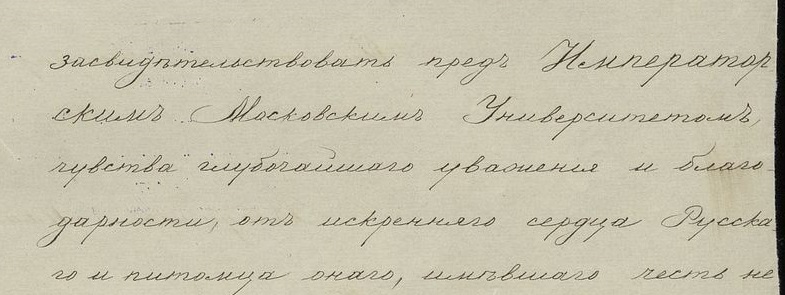 засвидѣтельствовать предъ Император
скимъ Московскимъ Университетомъ,
чувства глубочайшаго уваженія и благо-
дарности, отъ искренняго сердца Русска-
го и питомца онаго, имѣвшаго честь не